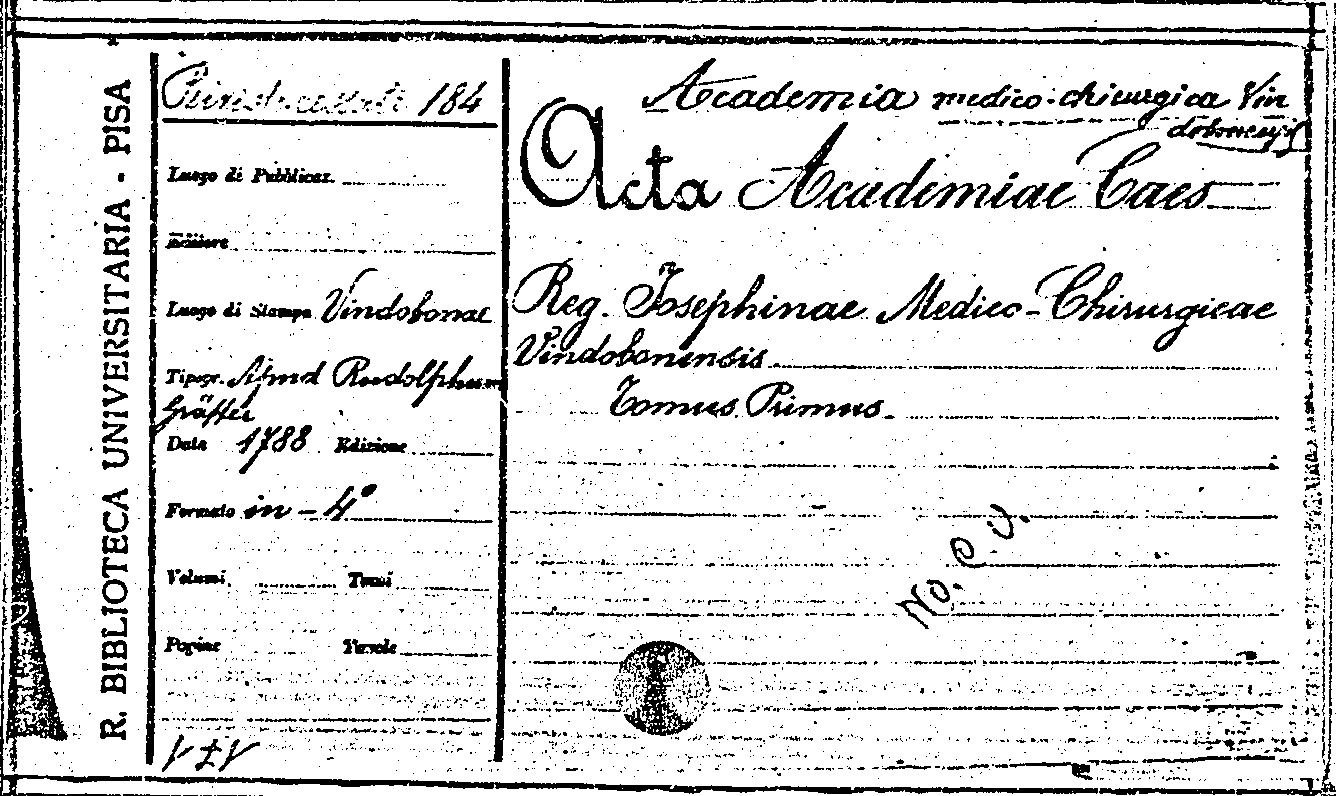 R. BIBLIOTECA UNIVERSITARIA - PISA
184
Luogo di Pubblicaz.
Editore
Luogo di Stampa Vindobonae
Tipogr. Apud Rudolphum
Gräffer
Data 1788 Edizione
Formato in - 4°
Volumi Tomi
Pagine Tavole
Academia medico-chirurgica Vin
dobonensis
Acta Academiae Caes
Reg. Josephinae Medico-Chirurgicae
Vindobonensis
Tomus Primus.
No. C. V.